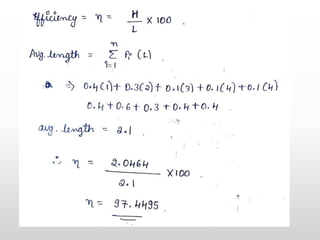 Efficiency = η = H/L × 100
Avg. length = n Σ i=1 Pi (L)
⇒ 0.4(1) + 0.3(2) + 0.1(3) + 0.1(4) + 0.1(4)
0.4 + 0.6 + 0.3 + 0.4 + 0.4
avg. length = 2.1
∴ η = 2.0464/2.1 × 100
η = 97.4495